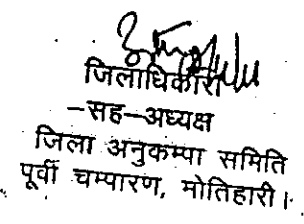 जिलाधिकारी
–सह–अध्यक्ष
जिला अनुकम्पा समिति
पूर्वी चम्पारण, मोतिहारी।